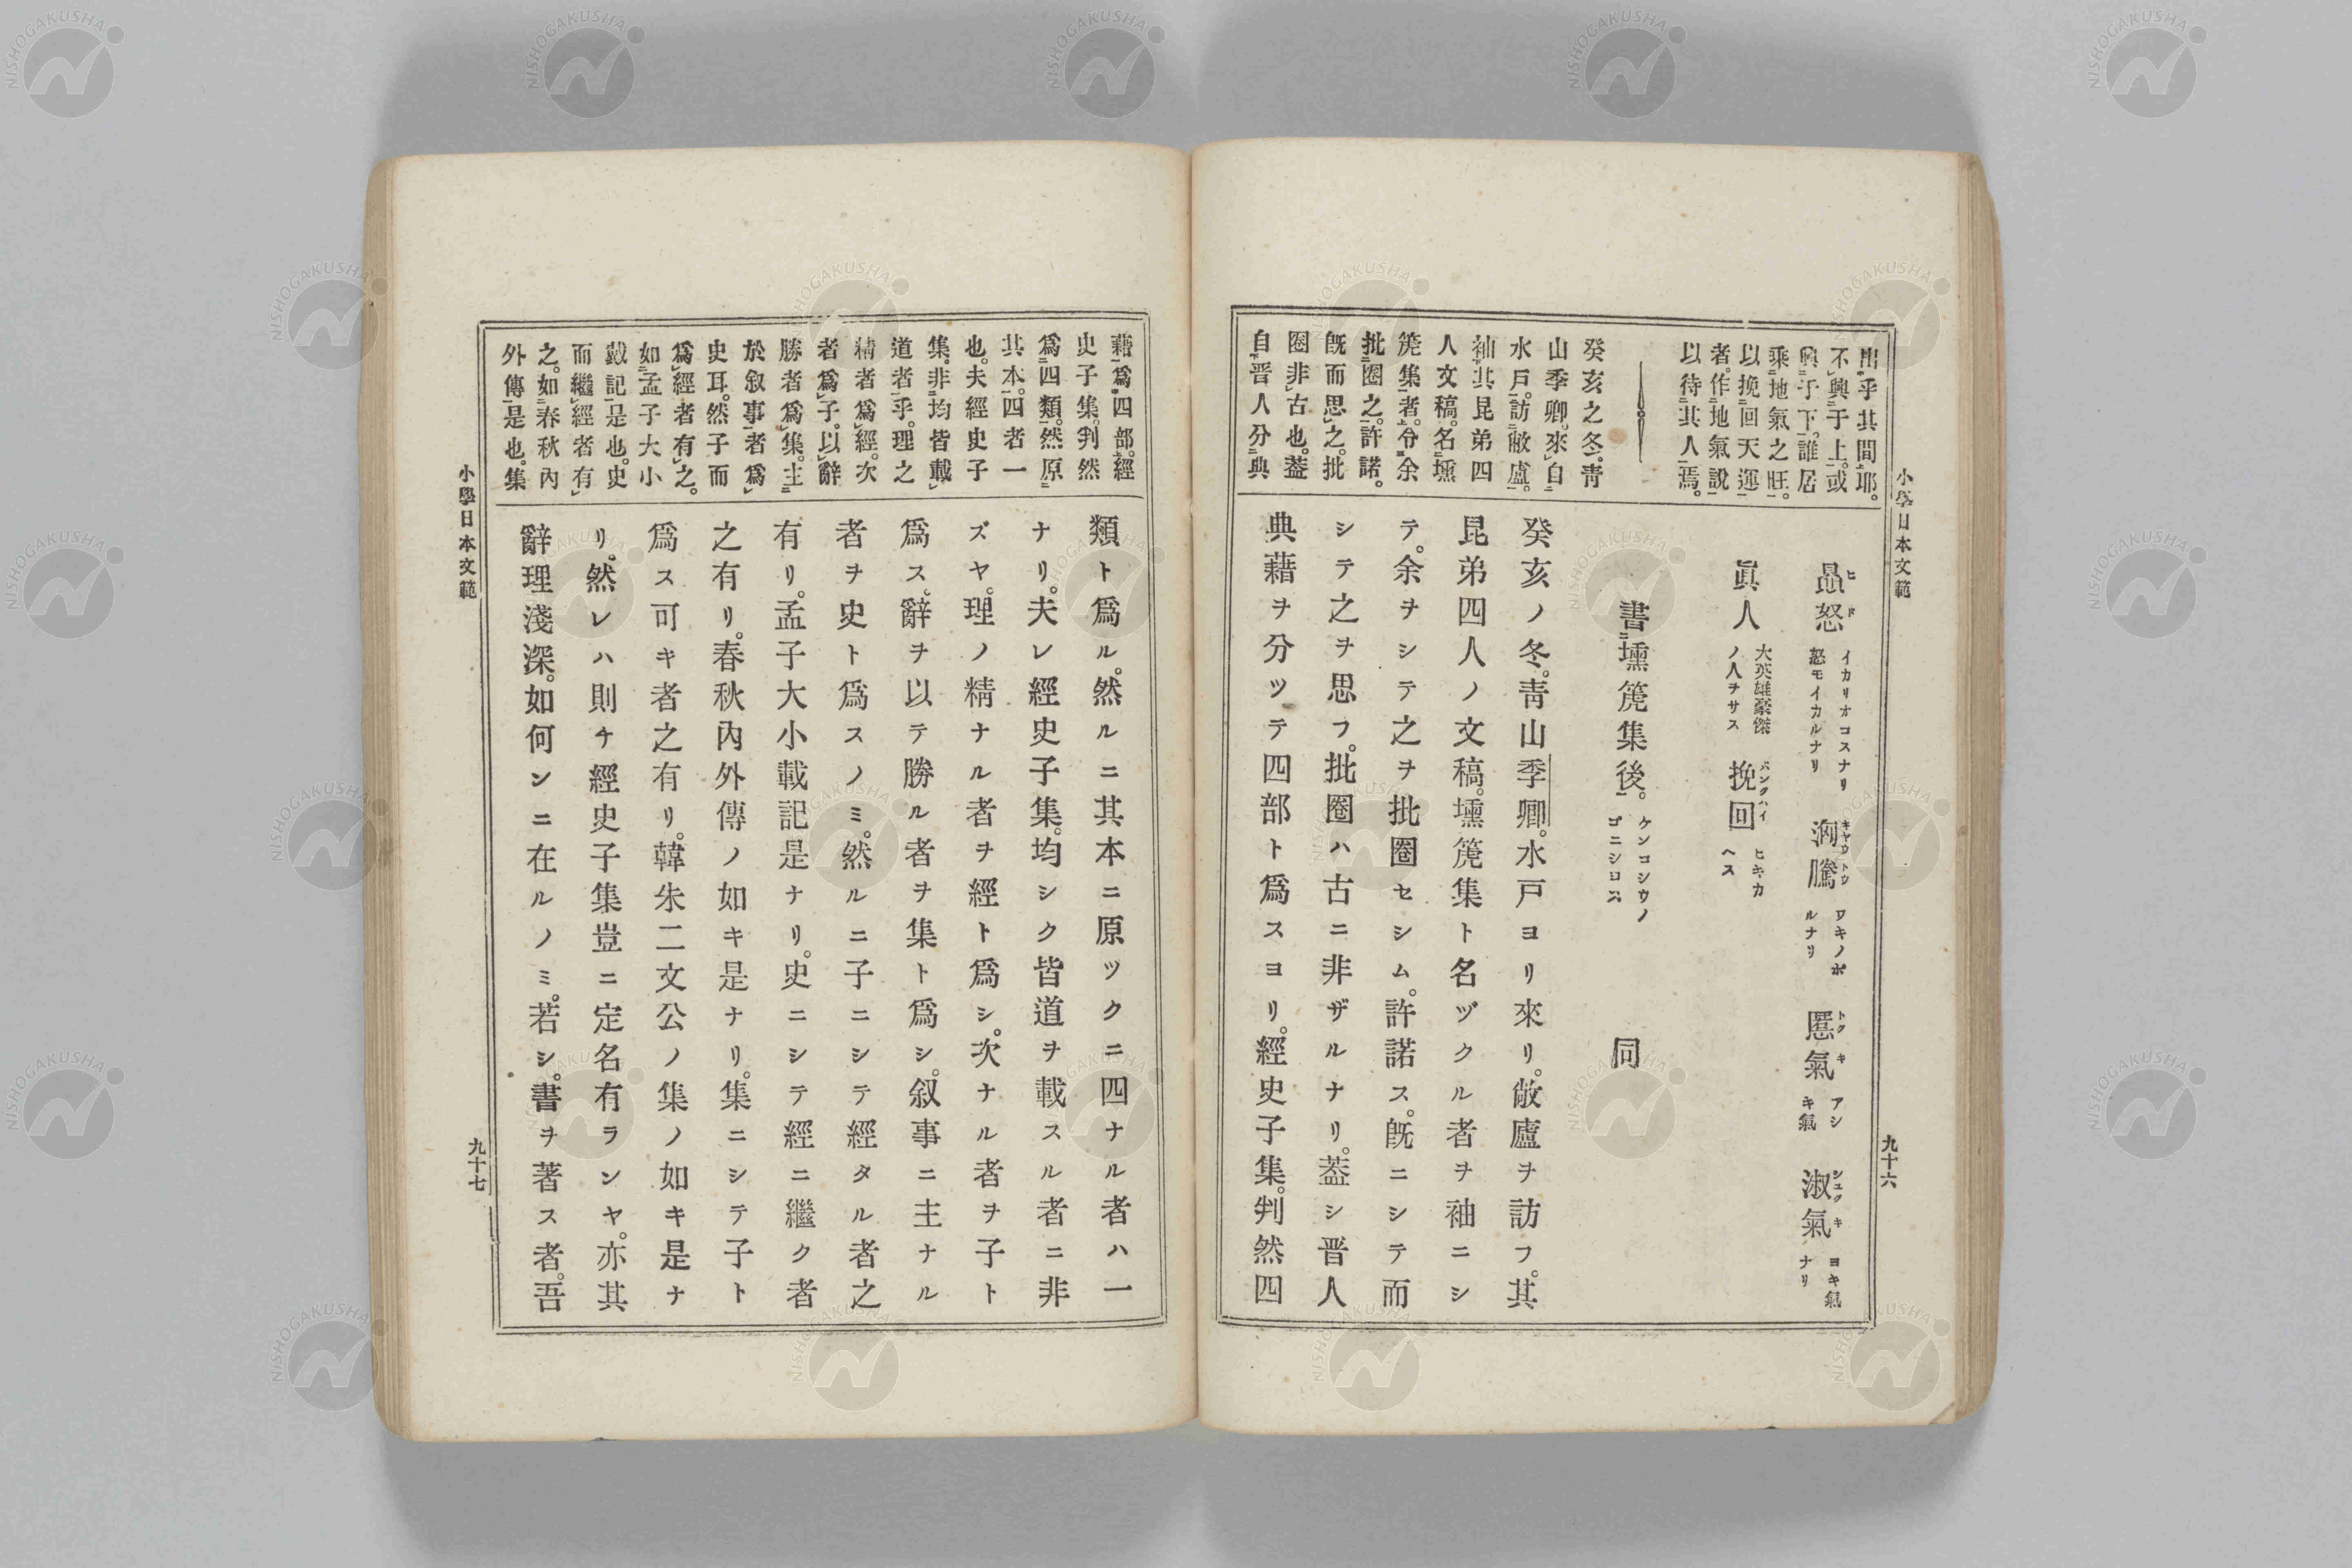 小學日本文範
九十六
出乎其間耶。
不興于上。或
興于下。誰居
乘地氣之旺。
以挽回天運
者。作地氣說
以待其人焉。
癸亥之冬。靑
山季卿。來自
水戸。訪敝廬。
袖其昆弟四
人文稿。名壎
箎集者。令余
批圈之。許諾。
旣而思之。批
圈非古也。葢
自晋人分典
怒 イカリオコスナリ
怒モイカルナリ
洶騰 キヤウトウ ワキノボ
ルナリ
慝氣 トクキ アシ
キ氣
淑氣 シユクキ ヨキ氣
ナリ
眞人 大英雄豪傑
ノ人ヲサス
挽回 バンクハイ ヒキカ
ヘス
書壎箎集後。 ケンコシウノ
ゴニシロス
同
癸亥ノ冬。靑山季卿。水戸ヨリ來リ。敝廬ヲ訪フ。其
昆弟四人ノ文稿。壎箎集ト名ヅクル者ヲ袖ニシ
テ。余ヲシテ之ヲ批圈セシム。許諾ス。旣ニシテ而
シテ之ヲ思フ。批圈ハ古ニ非ザルナリ。葢シ晋人
典藉ヲ分ツテ四部ト爲スヨリ。經史子集。判然四
藉爲四部。經
史子集。判然
爲四類。然原
其本。四者一
也。夫經史子
集。非均皆載
道者乎。理之
精者爲經。次
者爲子。以辭
勝者爲集。主
於叙事者爲
史耳。然子而
爲經者有之。
如孟子大小
戴記是也。史
而繼經者有
之。如春秋內
外傳是也。集
類ト爲ル。然ルニ其本ニ原ツクニ四ナル者ハ一
ナリ。夫レ經史子集。均シク皆道ヲ載スル者ニ非
ズヤ。理ノ精ナル者ヲ經ト爲シ。次ナル者ヲ子ト
爲ス。辭ヲ以テ勝ル者ヲ集ト爲シ。叙事ニ主ナル
者ヲ史ト爲スノミ。然ルニ子ニシテ經タル者之
有リ。孟子大小載記是ナリ。史ニシテ經ニ繼ク者
之有リ。春秋內外傳ノ如キ是ナリ。集ニシテ子ト
爲ス可キ者之有リ。韓朱二文公ノ集ノ如キ是ナ
リ。然レハ則チ經史子集豈ニ定名有ランヤ。亦其
辭理淺深。如何ンニ在ルノミ。若シ。書ヲ著ス者。吾
小學日本文範
九十七
NISHOGAKUSHA